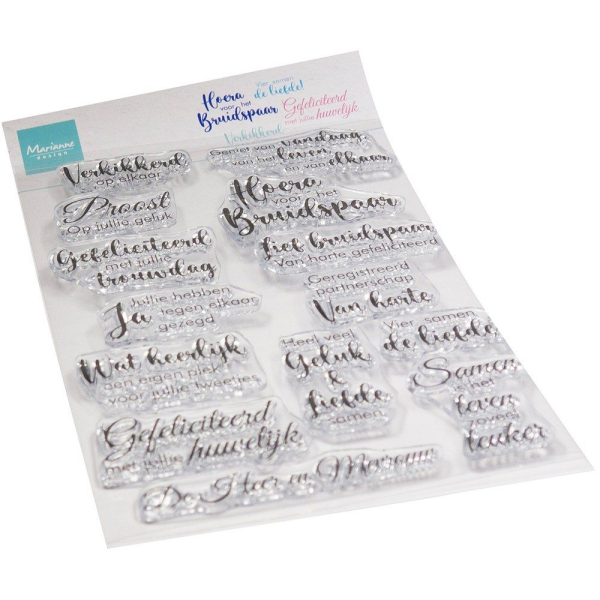 Marianne
design
Hoera
voor het
Bruidspaar
Vier samen
de liefde!
Gefeliciteerd
met jullie huwelijk
Verkikkerd
Verkikkerd
op elkaar
Geniet van vandaag
van het leven
en van elkaar
Proost
Op jullie geluk
Hoera
voor het
Bruidspaar
Gefeliciteerd
met jullie
trouwdag
Lief bruidspaar
Van harte gefeliciteerd
Jullie hebben
Ja tegen elkaar
gezegd
Geregistreerd
partnerschap
Van harte
Wat heerlijk
een eigen plek
voor jullie tweetjes
Heel veel
Geluk
&
Liefde
samen
Vier samen
de liefde
Gefeliciteerd
met jullie huwelijk
Samen
is met
leven
zoveel
leuker
De Heer en Mevrouw